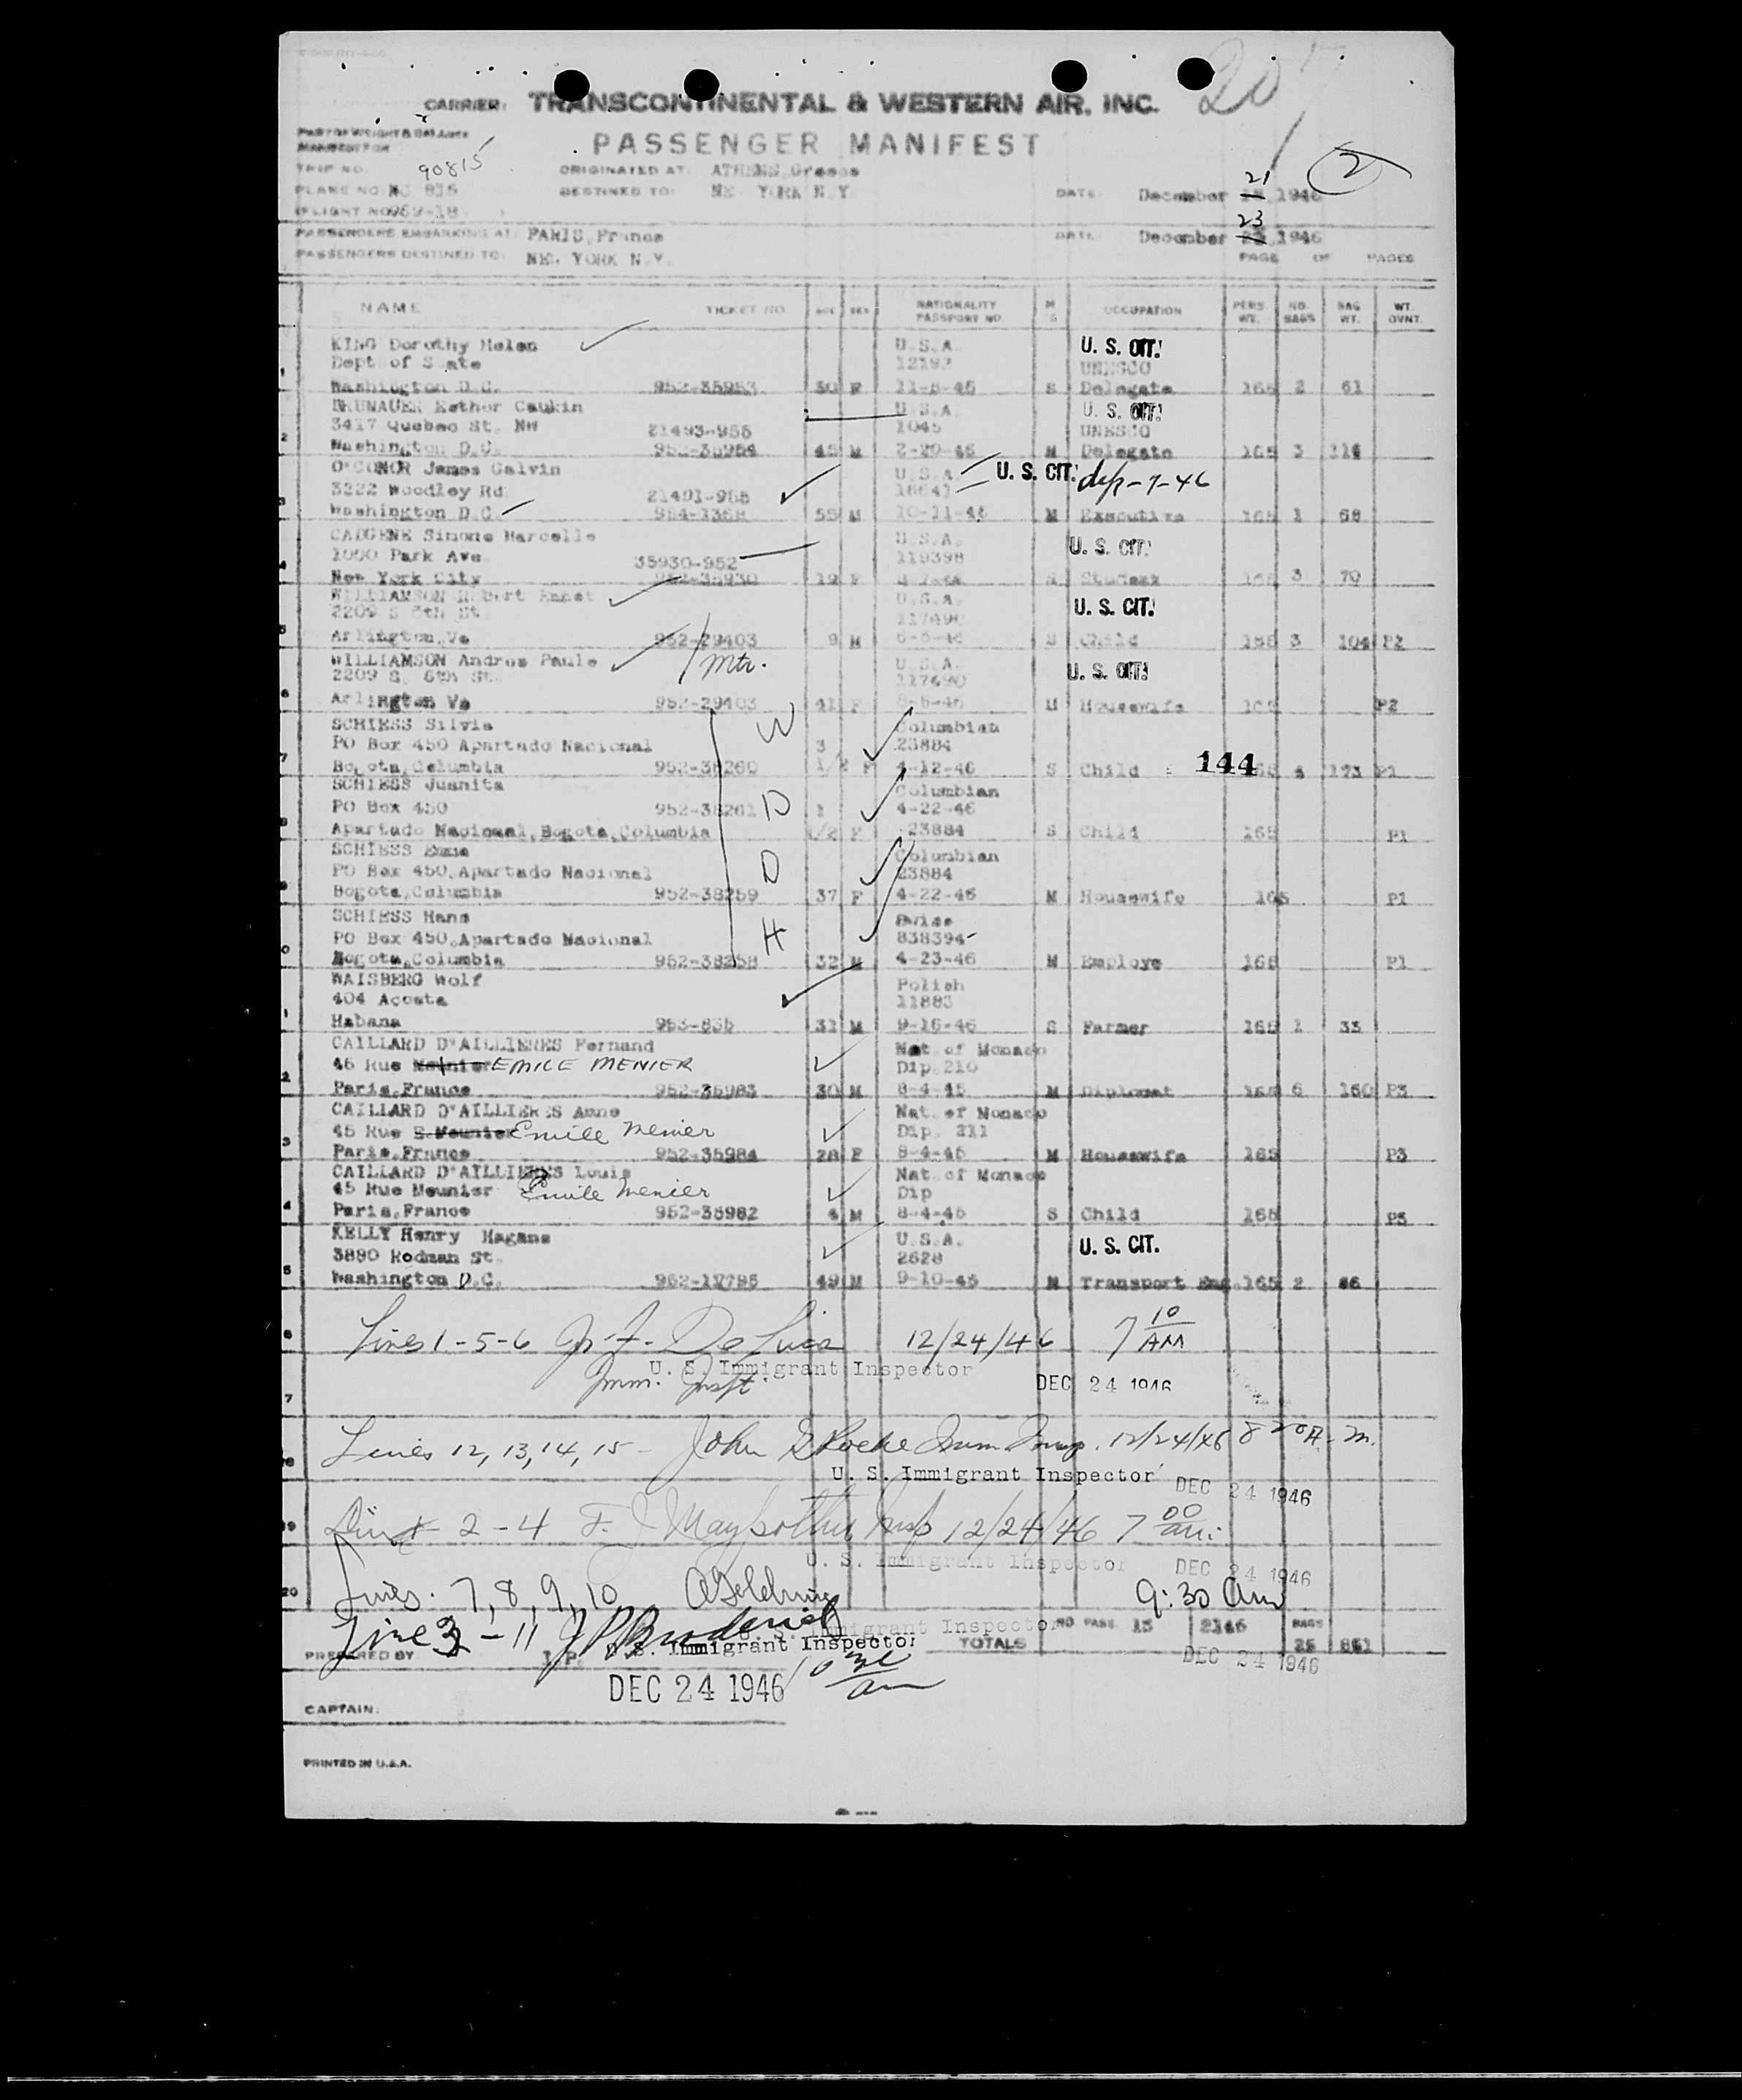 20
CARRIER: TRANSCONTINENTAL & WESTERN AIR, INC.
PART OF WEIGHT & BALANCE
MANIFEST FOR
PASSENGER MANIFEST
TRIP NO. 90815 ORIGINATED AT: ATHENS, Greece
PLANE NO. DESTINED TO: NE. YORK N.Y DATE: December 21 1946 2
(FLIGHT NO 969-18 )
PASSENGERS EMBARKING AT: PARIS, France DATE: December 23 1946
PASSENGERS DESTINED TO: NE. YORK N.Y. PAGE OF PAGES
NAME TICKET NO. AGE SEX NATIONALITY PASSPORT NO. M S OCCUPATION PERS. WT. NO. BAGS BAG WT. WT. OVNT.
KING Dorothy Helen U.S.A. U. S. CIT.
Dept of S ate 12192 UNESCO
1 Washington D.C. 952-35953 30 F 11-5-45 S Delegate 165 2 61
BRUNAUER Esther Caukin U.S.A. U. S. CIT.
3417 Quebec St. NW 21493-955 1045 UNESCO
2 Washington D.C. 952-35954 45 M 2-20-46 M Delegate 165 3 114
O'CONOR James Galvin U.S.A. U. S. CIT. dep-7-46
3222 Woodley Rd 21491-955
3 Washington D.C. 954-1368 55 M 10-11-45 M Executive 165 1 68
CADGENE Simone Marcelle U.S.A. U. S. CIT.
1000 Park Ave. 35930-952 119398
4 New York City 952-35930 19 F Student 165 3 70
WILLIAMSON Robert Ernst U.S.A. U. S. CIT.
2209 S 6th St.
5 Arlington, Va 952-29403 9 M S Child 165 3 104 P2
WILLIAMSON Andree Paule Mtr. U.S.A. U. S. CIT.
2209 S. 6th St. 117490
6 Arlington Va 952-29403 41 F M Housewife 165 P2
SCHIESS Silvia W Columbian
PO Box 450 Apartado Nacional 3 23884
7 Bogota, Columbia 952-38260 1/2 F 4-12-46 S Child 144 165 173 P1
SCHIESS Juanita D Columbian
PO Box 450 952-38261 1 4-22-46
8 Apartado Nacional, Bogota, Columbia 1/2 F 23884 S Child 165 P1
SCHIESS Emma D Columbian
PO Box 450, Apartado Nacional 23884
9 Bogota, Columbia 952-38259 37 F 4-22-46 M Housewife 165 P1
SCHIESS Hans H Swiss
PO Box 450, Apartado Nacional 838394
0 Bogota, Columbia 952-38258 32 M 4-23-46 M Employe 165 P1
WAISBERG Wolf Polish
404 Acosta 11883
1 Habana 953-835 31 M 9-16-46 S Farmer 165 1 33
CAILLARD D'AILLIERES Fernand Nat. of Monaco
45 Rue EMILE MENIER Dip. 210
2 Paris, France 952-35983 30 M 8-4-45 M Diplomat 165 6 160 P3
CAILLARD D'AILLIERES Anne Nat. of Monaco
45 Rue E. Meunier Emile Menier Dip. 211
3 Paris, France 952-35984 28 F 8-4-45 M Housewife 165 P3
CAILLARD D'AILLIERES Louis Nat. of Monaco
45 Rue Meunier Emile Menier Dip
4 Paris, France 952-35982 4 M 8-4-45 S Child 165 P3
KELLY Henry Hagans U.S.A. U. S. CIT.
3890 Rodman St. 2628
5 Washington D.C. 952-17795 49 M 9-10-45 M Transport Eng. 165 2 66
6 Lines 1-5-6 De Luca 12/24/46 7 10 AM
U. S. Immigrant Inspector
Imm. Inspt. DEC 24 1946
7
Lines 12, 13, 14, 15 - John Roche Imm Insp. 12/24/46 8 20 A. M.
U. S. Immigrant Inspector DEC 24 1946
19 Line 2-4 F. J Insp 12/24/46 7 00 am.
U. S. Immigrant Inspector DEC 24 1946
20 Lines. 7, 8, 9, 10 9:30 am
Line 3-11 U. S. Immigrant Inspector NO PASS. 15 2146 BAGS
PREPARED BY U. S. Immigrant Inspector TOTALS 25 861
DEC 24 1946
DEC 24 1946 am
CAPTAIN:
PRINTED IN U.S.A.